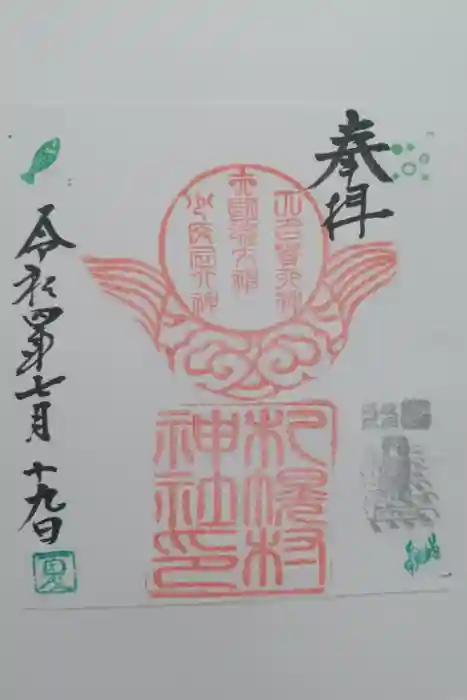 奉拝
大己貴大神
大國魂大神
少彦名大神
札幌村
神社印
令和四年七月十九日
夏